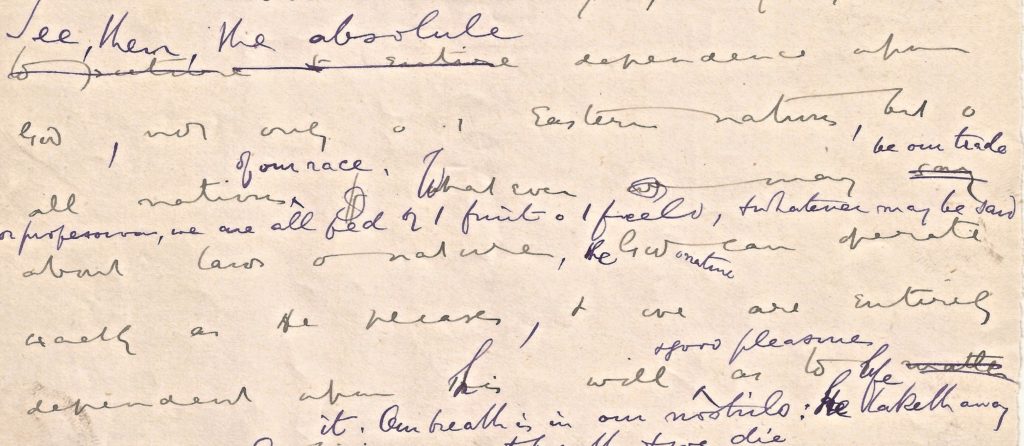 See, then, the absolute
dependence upon
God, not only o 1 Eastern nations, but o
of our race. be our trade
all nations, Whatever may say
or profession, we are all fed by 1 fruit o 1 field, & whatever may be said
about laws o nature, the God o nature can operate
exactly as He pleases, & we are entirely
& good pleasure
dependent upon His will as to life
it. Our breath is in our nostrils: He taketh away
die